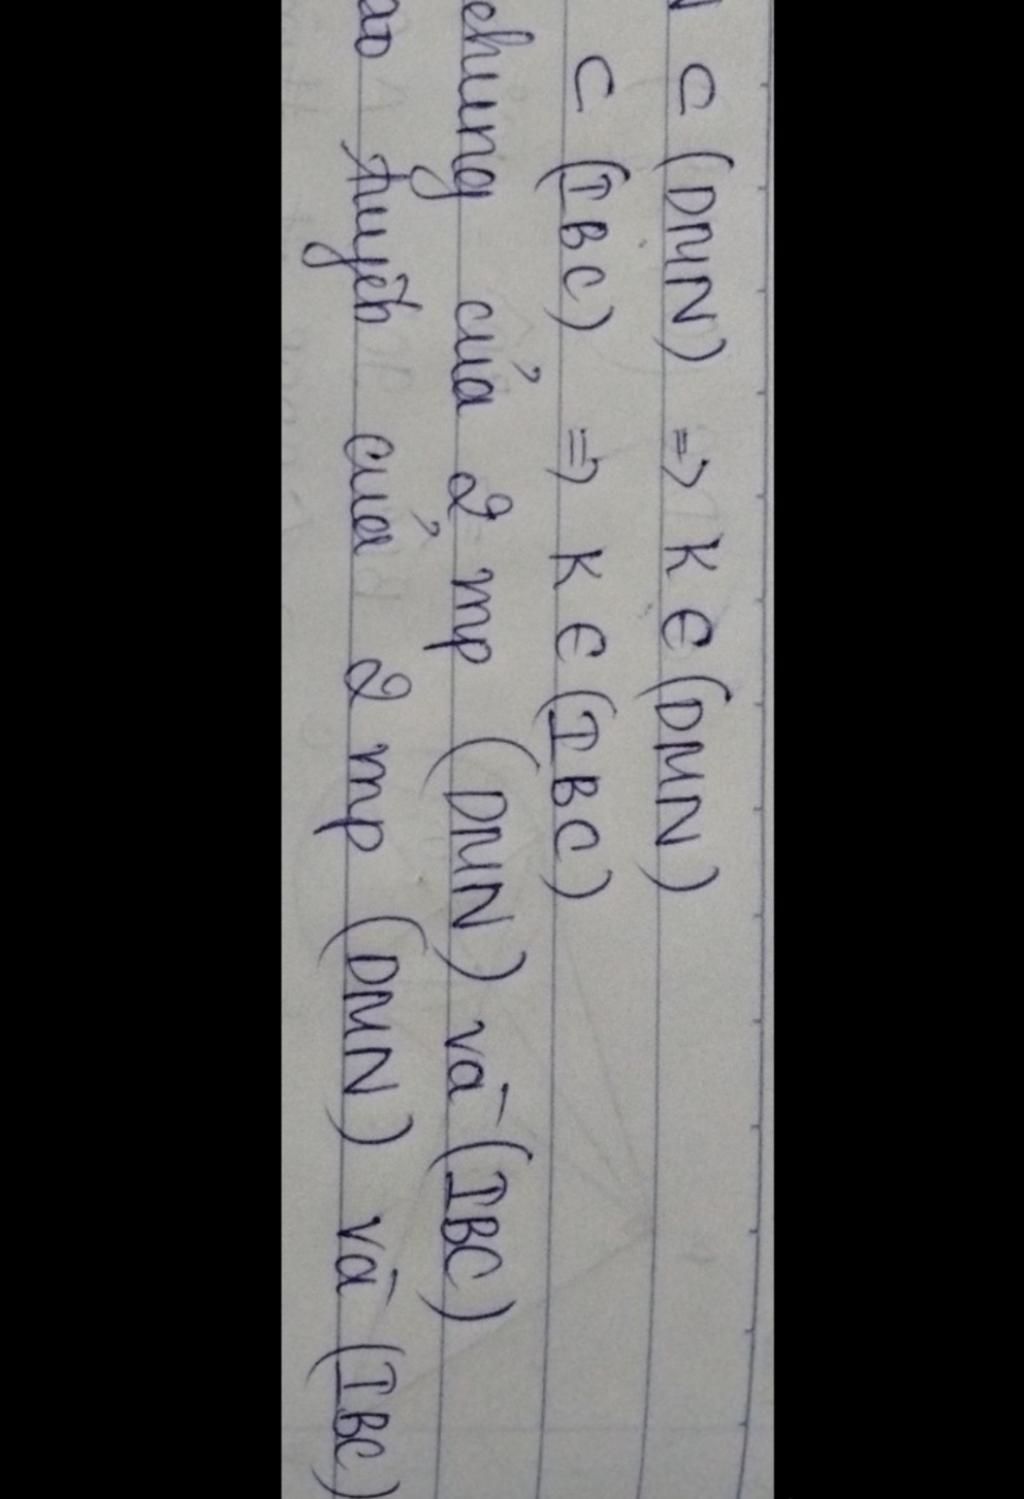 ⊂ (DMN) => K ∈ (DMN)
⊂ (IBC) => K ∈ (IBC)
chung của 2 mp (DMN) và (IBC)
ao tuyến của 2 mp (DMN) và (IBC)